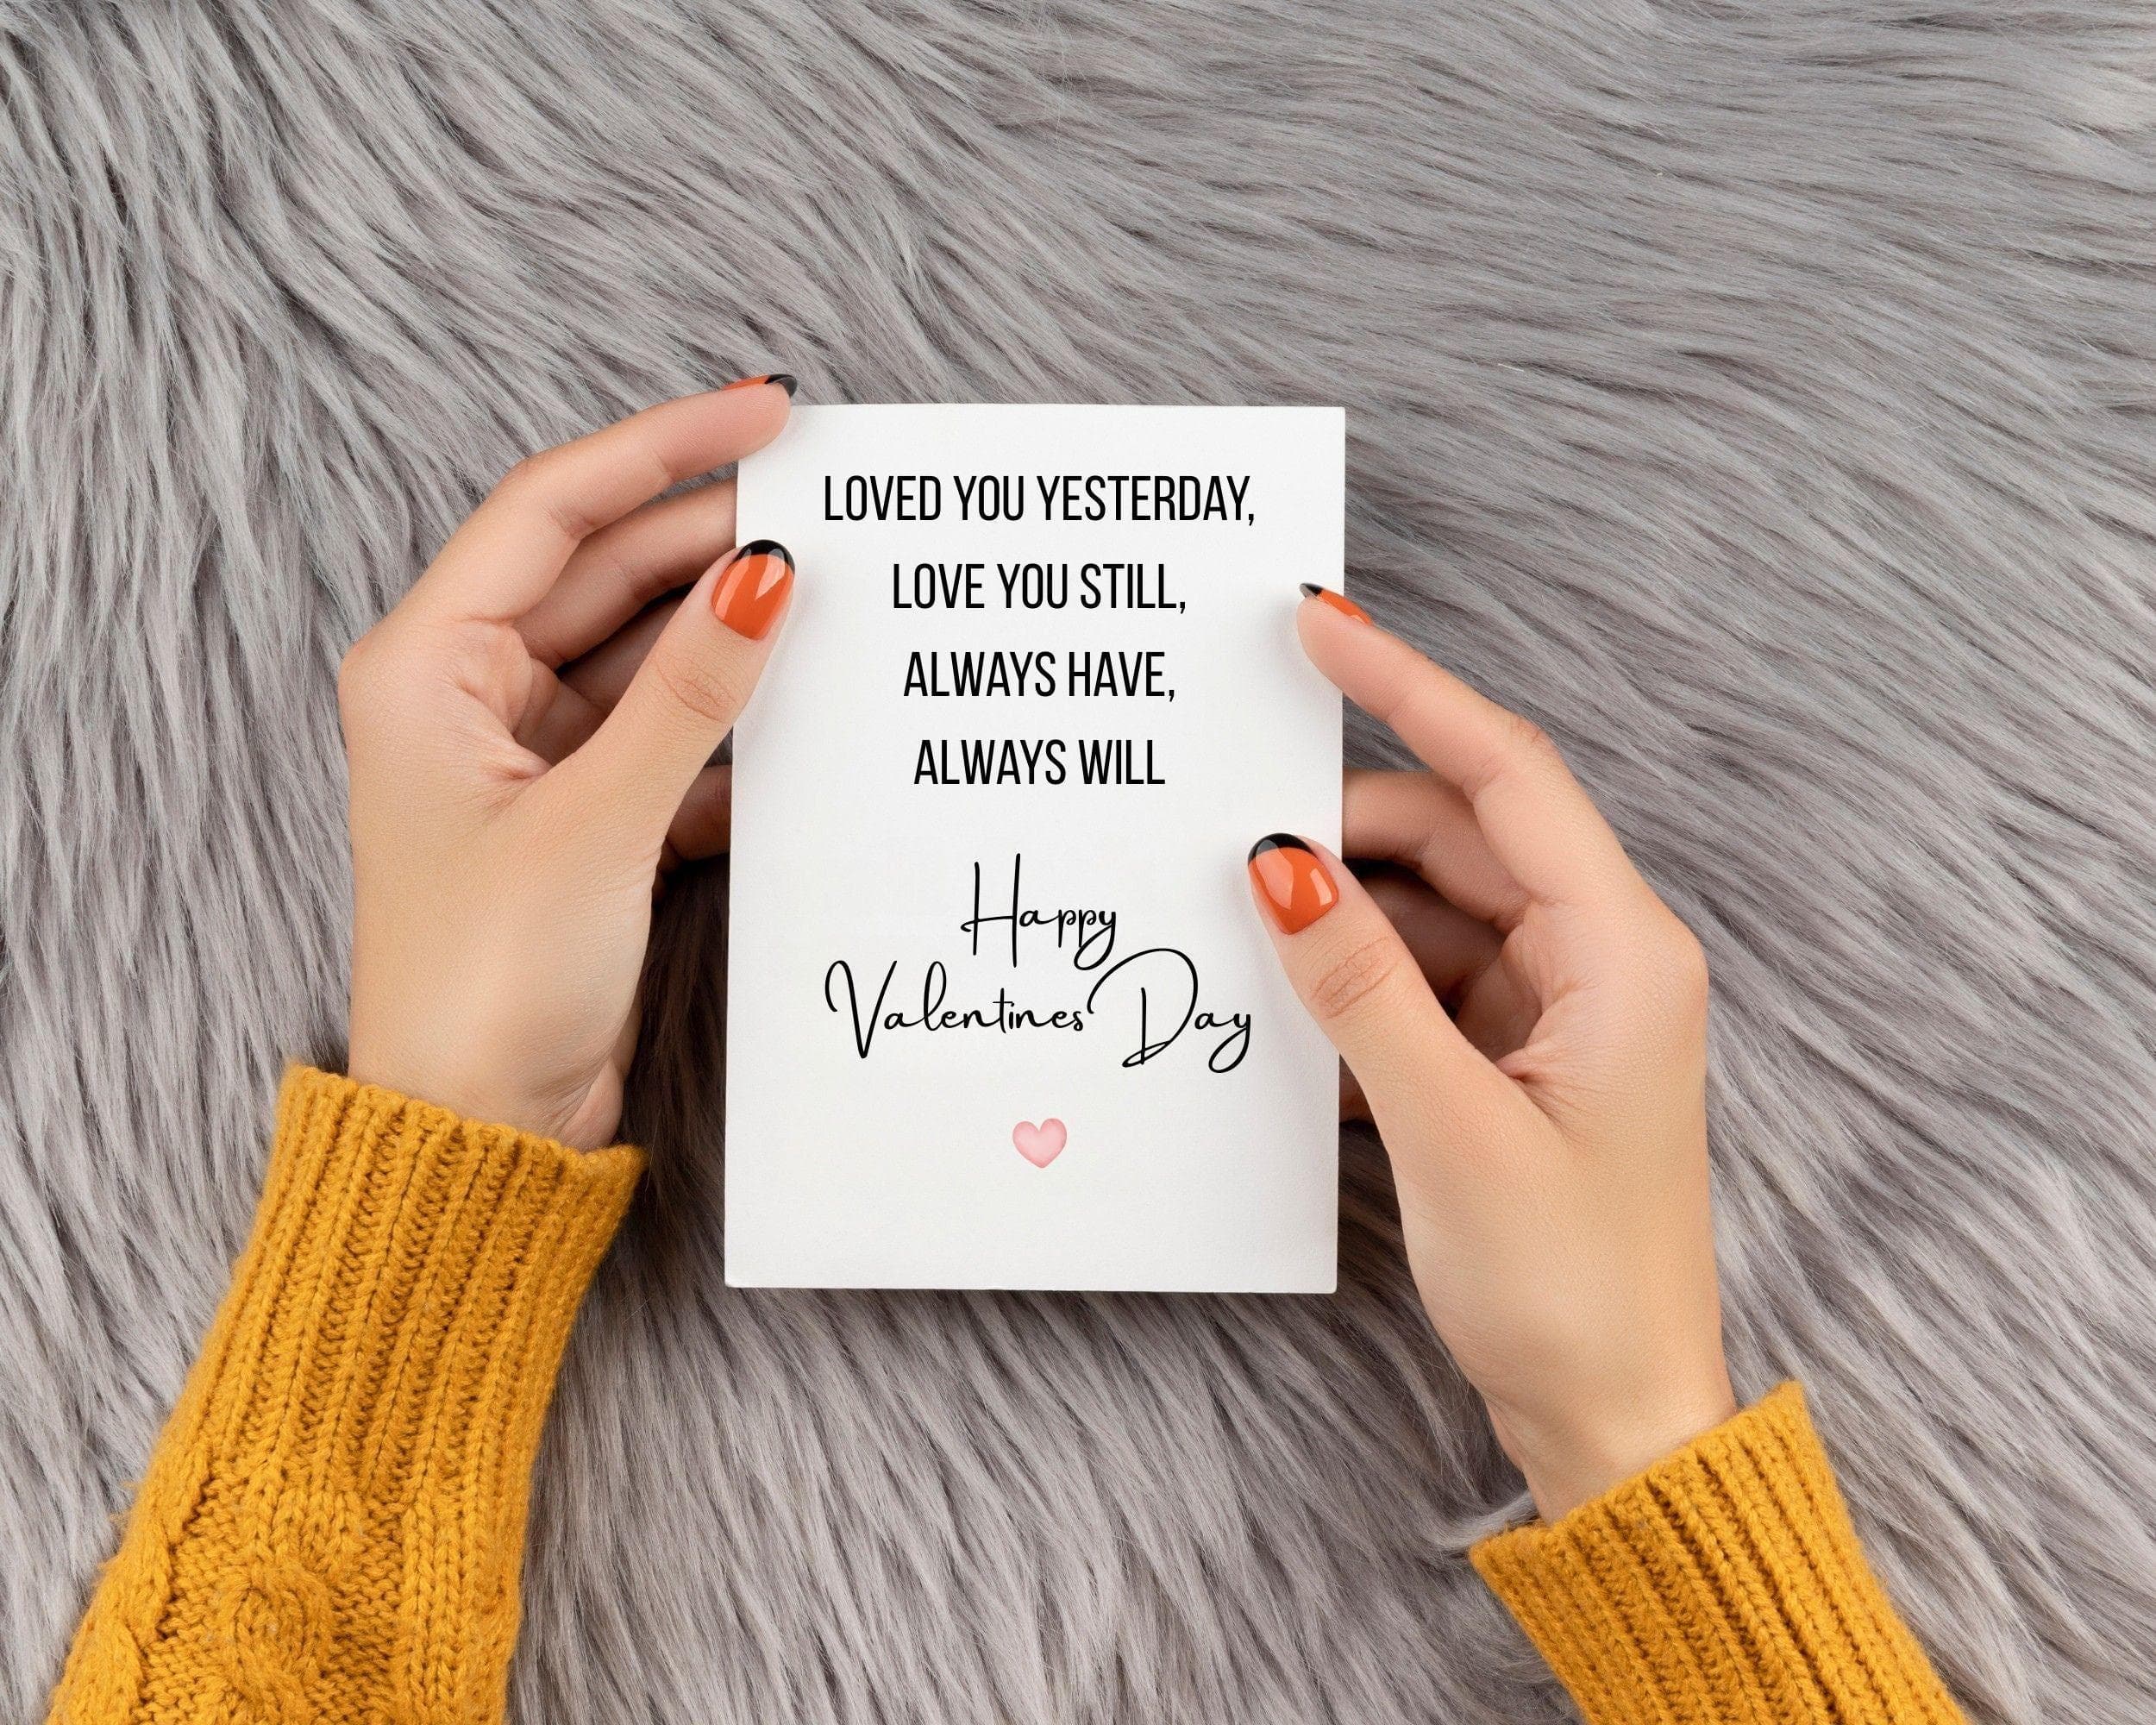 LOVED YOU YESTERDAY,
LOVE YOU STILL,
ALWAYS HAVE,
ALWAYS WILL
Happy
Valentines Day